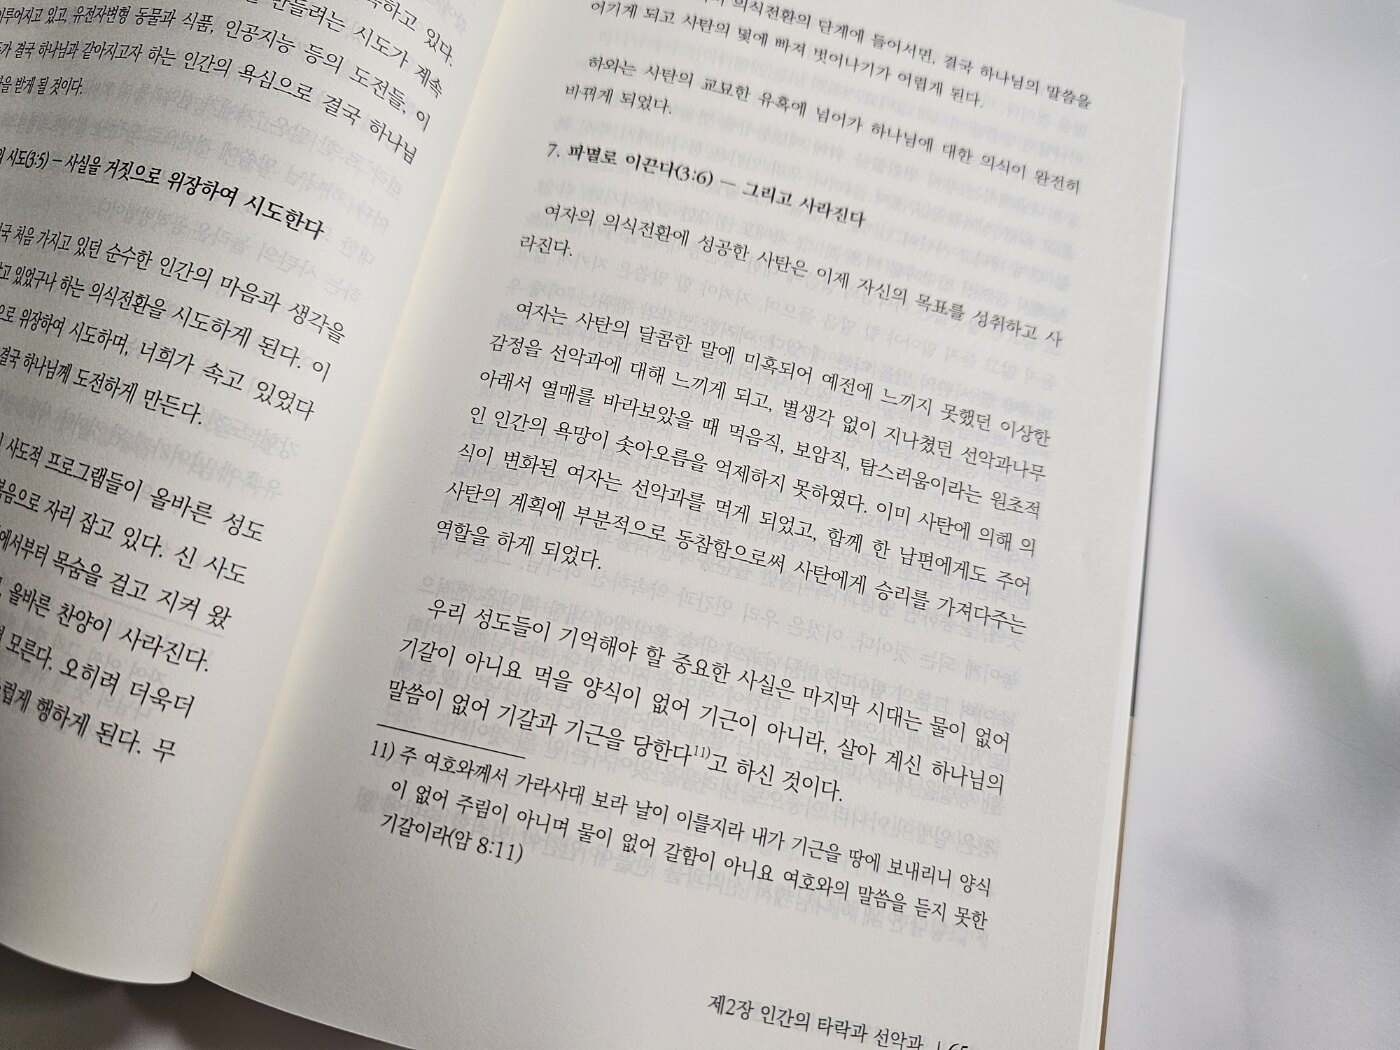 하고 있다.
만들려는 시도가 계속
이루어지고 있고, 유전자변형 동물과 식품, 인공지능 등의 도전들, 이
가 결국 하나님과 같아지고자 하는 인간의 욕심으로 결국 하나님
을 받게 될 것이다.
시도(3:5) – 사실을 거짓으로 위장하여 시도한다
처음 가지고 있던 순수한 인간의 마음과 생각을
있었구나 하는 의식전환을 시도하게 된다. 이
로 위장하여 시도하며, 너희가 속고 있었다
결국 하나님께 도전하게 만든다.
사도적 프로그램들이 올바른 성도
복음으로 자리 잡고 있다. 신 사도
에서부터 목숨을 걸고 지켜 왔
올바른 찬양이 사라진다.
모른다. 오히려 더욱더
럽게 행하게 된다. 무
의식전환의 단계에 들어서면, 결국 하나님의 말씀을
어기게 되고 사탄의 덫에 빠져 벗어나기가 어렵게 된다.
하와는 사탄의 교묘한 유혹에 넘어가 하나님에 대한 의식이 완전히
바뀌게 되었다.
7. 파멸로 이끈다(3:6) – 그리고 사라진다
여자의 의식전환에 성공한 사탄은 이제 자신의 목표를 성취하고 사
라진다.
여자는 사탄의 달콤한 말에 미혹되어 예전에 느끼지 못했던 이상한
감정을 선악과에 대해 느끼게 되고, 별생각 없이 지나쳤던 선악과나무
아래서 열매를 바라보았을 때 먹음직, 보암직, 탐스러움이라는 원초적
인 인간의 욕망이 솟아오름을 억제하지 못하였다. 이미 사탄에 의해 의
식이 변화된 여자는 선악과를 먹게 되었고, 함께 한 남편에게도 주어
사탄의 계획에 부분적으로 동참함으로써 사탄에게 승리를 가져다주는
역할을 하게 되었다.
우리 성도들이 기억해야 할 중요한 사실은 마지막 시대는 물이 없어
기갈이 아니요 먹을 양식이 없어 기근이 아니라, 살아 계신 하나님의
말씀이 없어 기갈과 기근을 당한다11)고 하신 것이다.
11) 주 여호와께서 가라사대 보라 날이 이를지라 내가 기근을 땅에 보내리니 양식
이 없어 주림이 아니며 물이 없어 갈함이 아니요 여호와의 말씀을 듣지 못한
기갈이라(암 8:11)
제2장 인간의 타락과 선악과 |